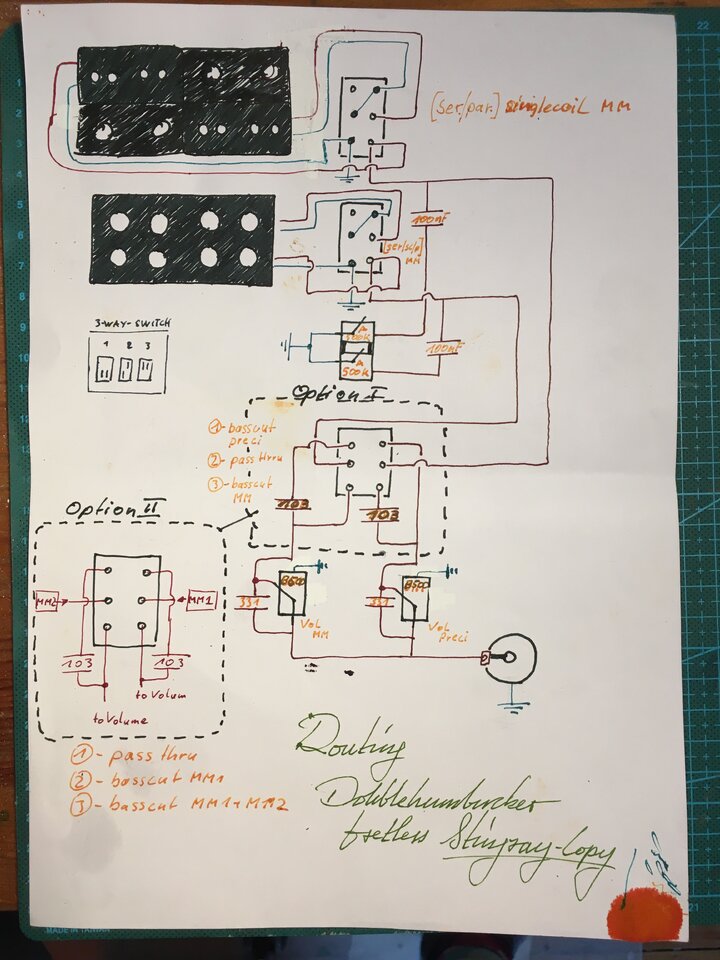 [ser/par.] singlecoil MM
100nF
[ser/sc/p] MM
3-WAY-SWITCH
1 2 3
A
500K
A
500K
100nF
Option I
① - basscut preci
② - pass thru
③ - basscut MM
103
103
Option II
MM2
MM1
103
103
to Volum
to Volume
B500
331
Vol MM
331
Vol Preci
① - pass thru
② - basscut MM1
③ - basscut MM1+MM2
Routing
Doublehumbucker
fretless Stingray-Copy
MADE IN TAIWAN
1
2
3
4
5
6
7
8
9
21